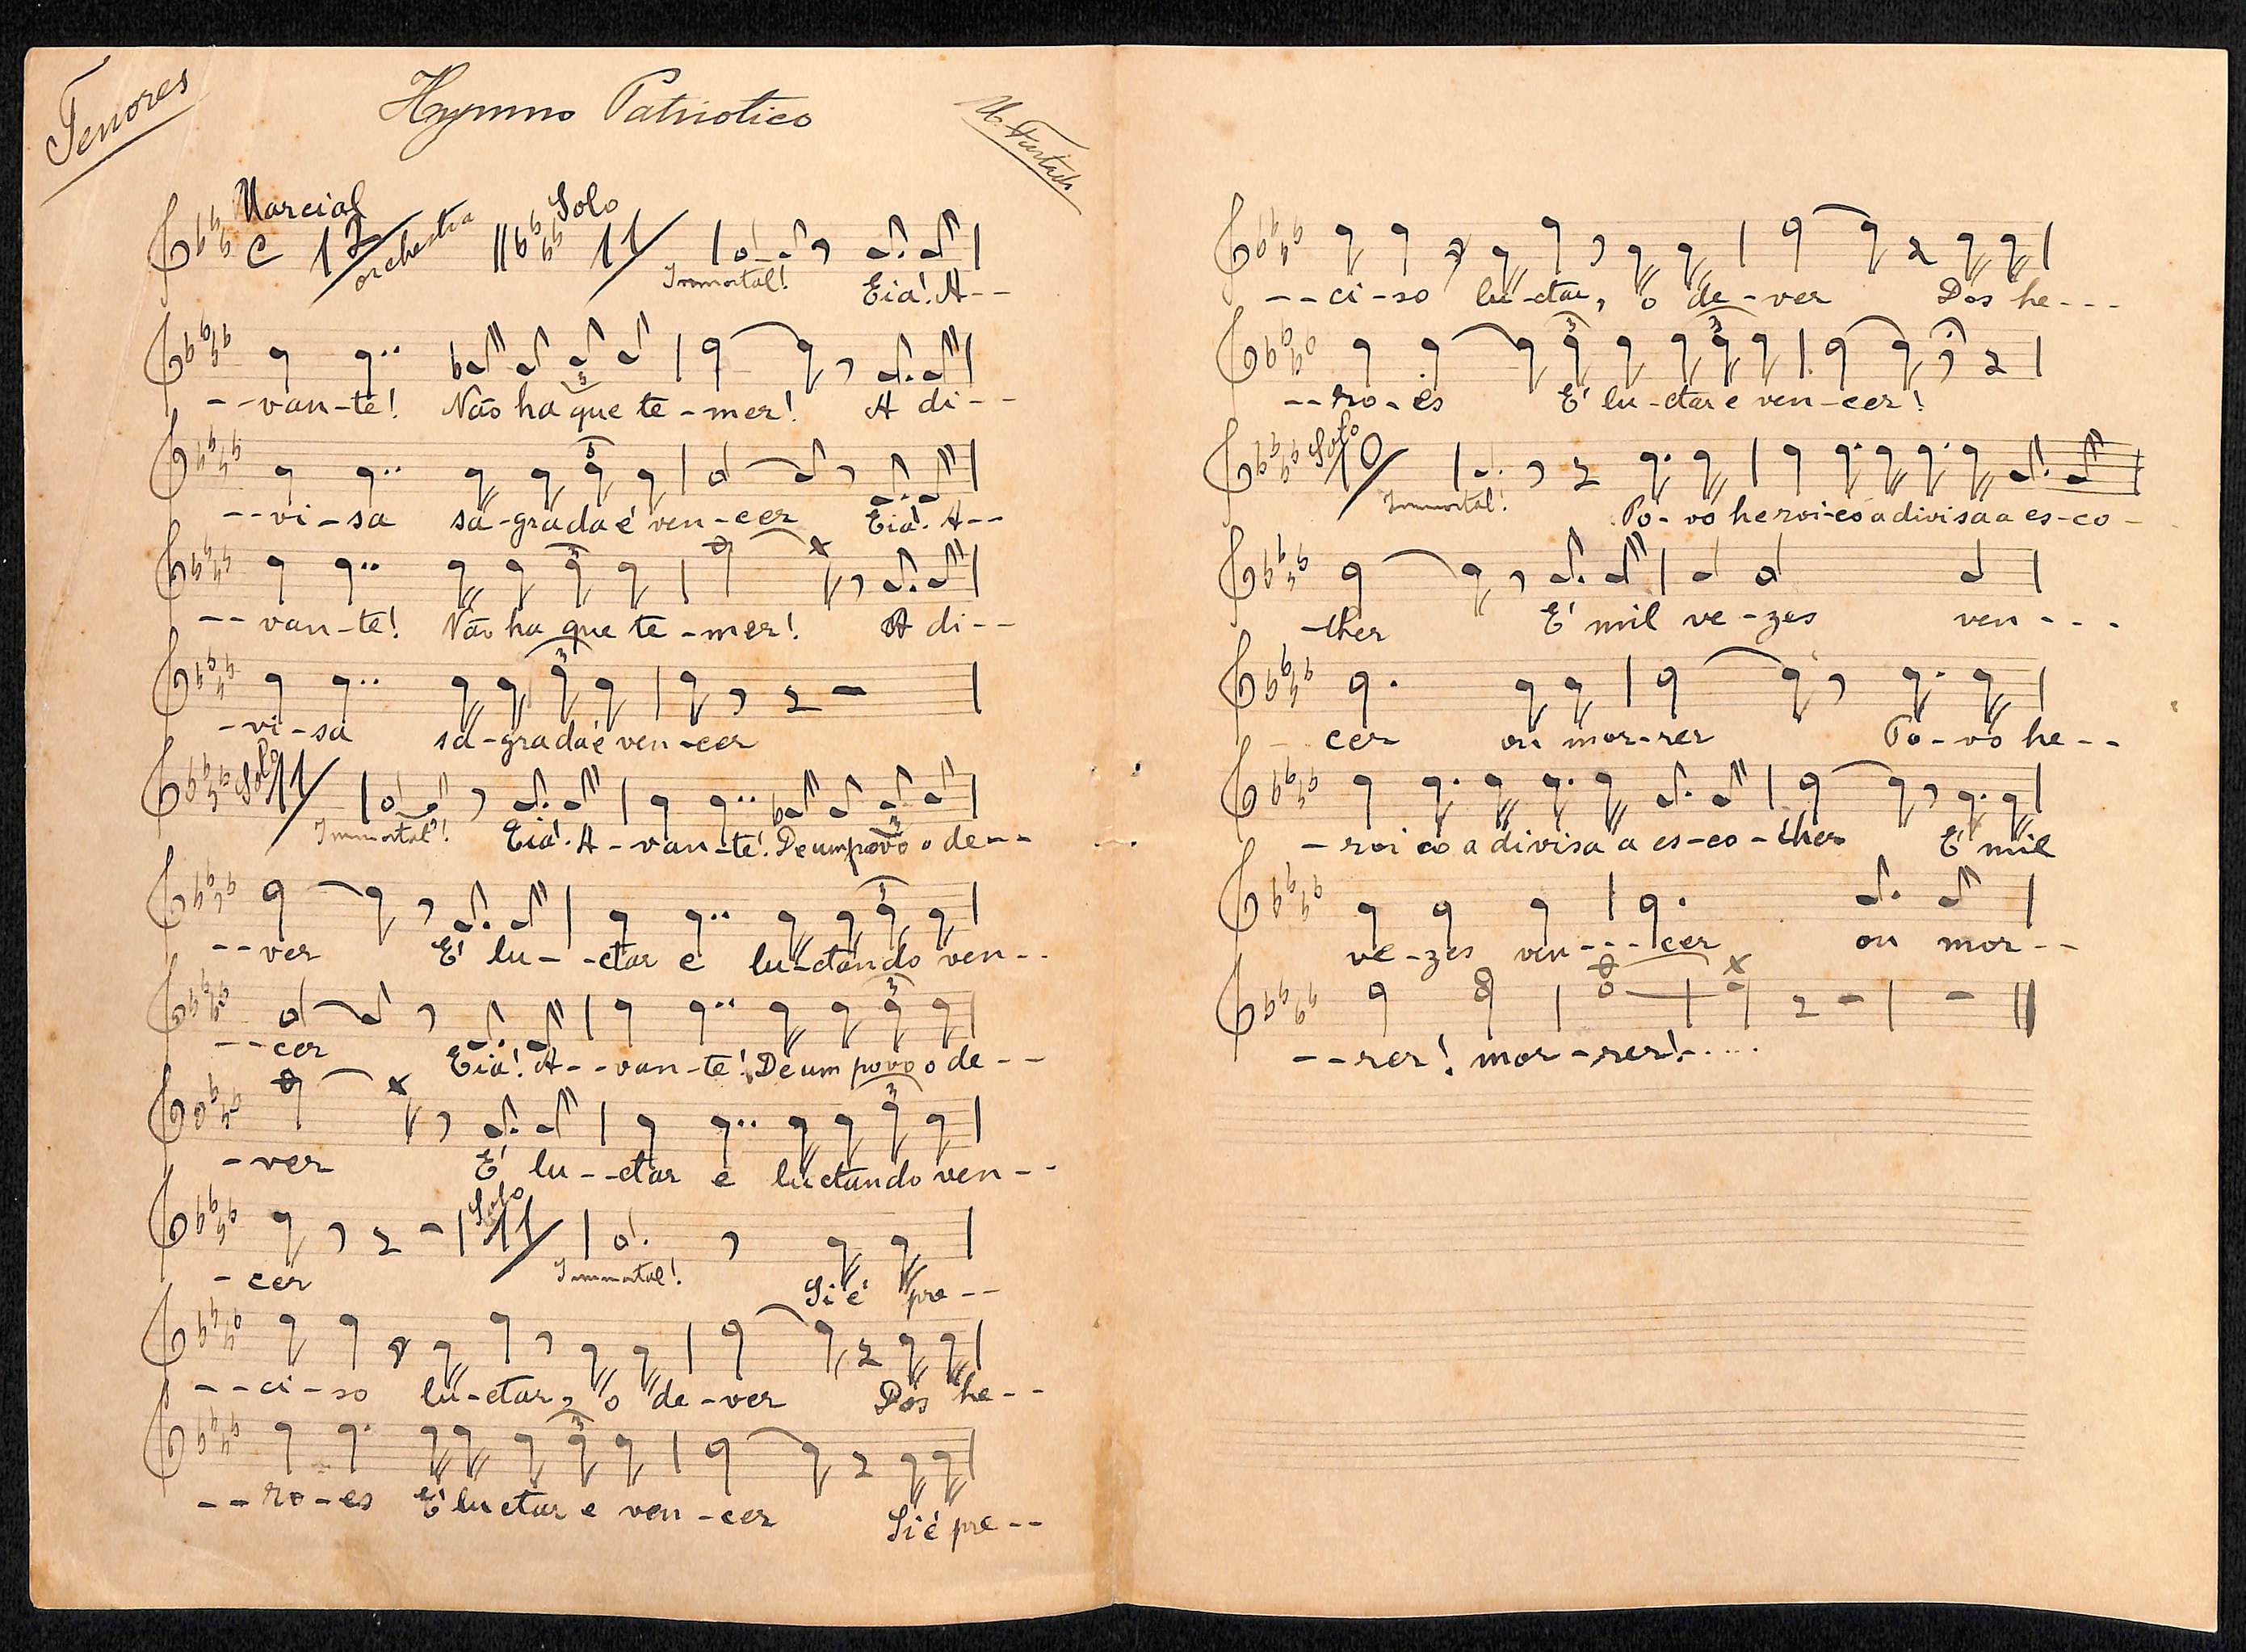 Tenores
Hymno Patriotico
Marcial
Solo
12 orchestra 11
Immortal! Eia! A--
--van-te! Não ha que te-mer! A di--
--vi-sa sa-grada é ven-cer Eia! A--
--van-te! Não ha que te-mer! A di--
-vi-sa sa-grada é ven-cer
Solo 11
Immortal! Eia! A-van-te! De um povo o de--
--ver É lu--ctar e lu-ctando ven--
--cer Eia! A--van-te! De um povo o de--
-ver É lu--ctar e luctando ven--
Solo 11
-cer Immortal! Si é pre--
--ci-so lu-ctar, o de-ver Dos he--
--ro-es É luctar e ven-cer Si é pre--
--ci-so lu-ctar, o de-ver Dos he---
--ro-es É lu-ctar e ven-cer!
Solo 10
Immortal! Po-vo heroi-co a divisa a es-co-
-lher É mil ve-zes ven---
cer ou mor-rer Po-vo he--
-roi co a divisa a es-co-lher É mil
ve-zes ven---cer ou mor--
--rer! mor-rer!.....